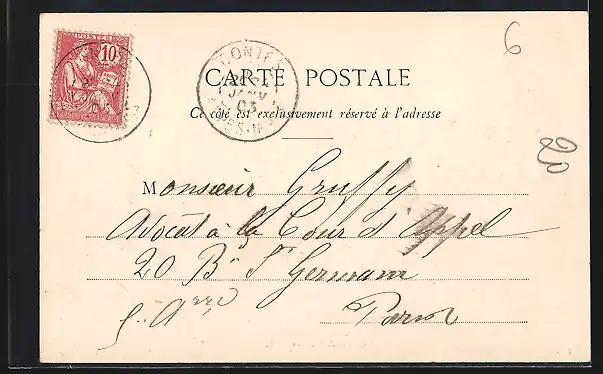 6
POSTES
10
CARTE POSTALE
JANV
03
Ce côté est exclusivement réservé à l'adresse
Monsieur Gruffy
Avocat à la Cour d'Appel
20 Bd St Germain
Paris